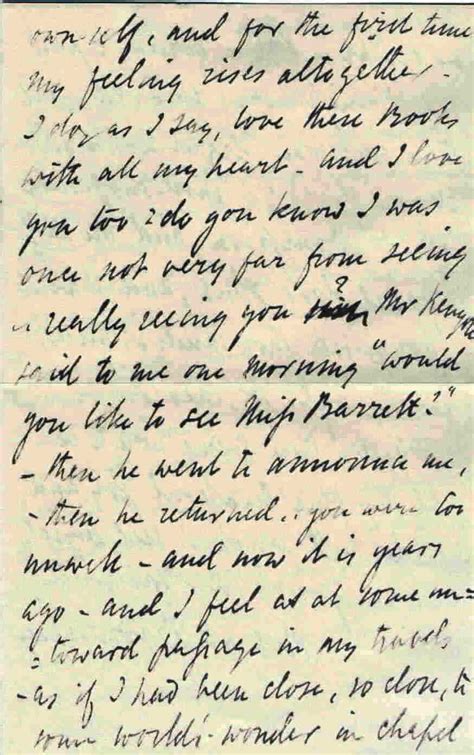 own self, and for the first time
my feeling rises altogether.
I do, as I say, love these Books
with all my heart - and I love
you too: do you know I was
once not very far from seeing
.. really seeing you? Mr Kenyon
said to me one morning "would
you like to see Miss Barrett?"
- then he went to announce me,
- then he returned.. you were too
unwell - and now it is years
ago - and I feel as at some un=
=toward passage in my travels
- as if I had been close, so close, to
some world's-wonder in chapel